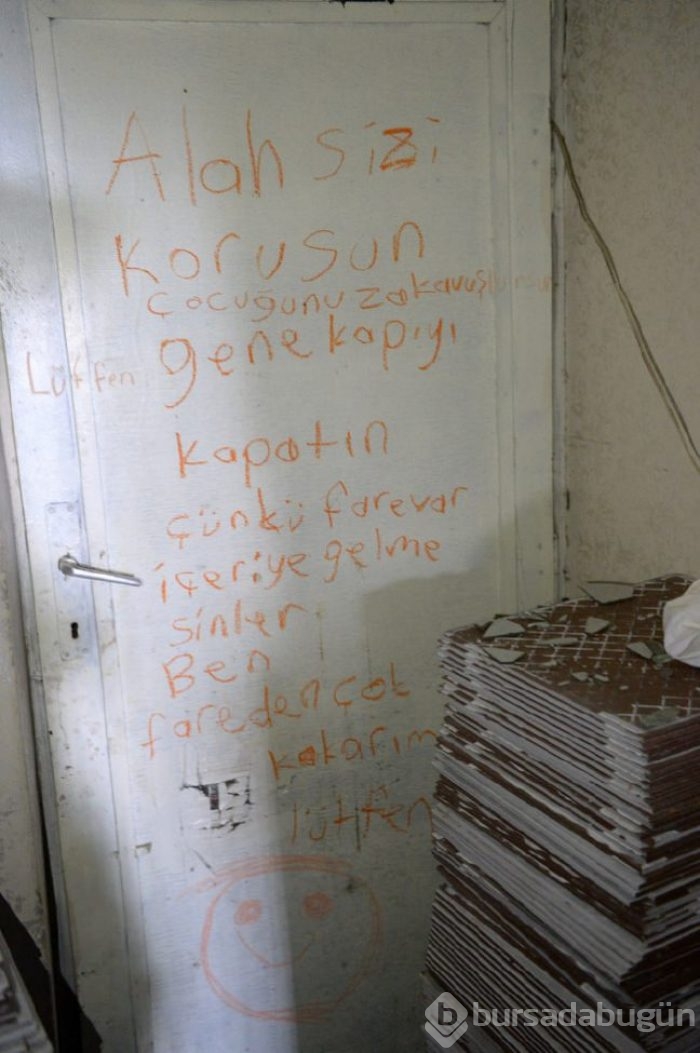 Alah sizi
korusun
çocuğunuza kavuştursun
gene kapıyı
Lütfen
kapatın
çünkü farevar
içeriye gelme
sinler
Ben
fareden çok
kokarım
lütfen
bursadabugün